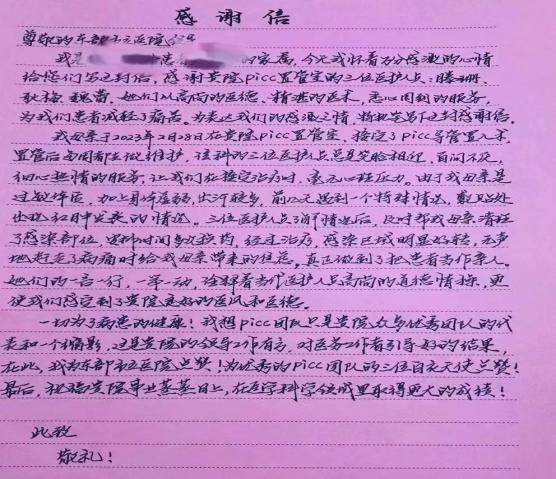 感谢信
尊敬的东部市立医院
我是 患者 的家属,今天我怀着万分感激的心情
给您们写这封信,感谢贵院picc置管室的三位医护人员:滕珊、
她们以高尚的医德、精湛的医术、悉心周到的服务,
为我们患者减轻了病苦。为表达我们的感激之情,特提笔写下这封感谢信。
我母亲于2023年2月28在贵院picc置管室,接受了picc导管置入术,
置管后每周都去做维护,该科的三位医护人员总是笑脸相迎,百问不厌,
细心热情的服务,让我们在接受治疗时,毫无心理压力。由于我母亲是
过敏体质,加上身体虚弱,出汗较多,前几天遇到一个特殊情况,敷贴处
出现红肿发炎的情况。三位医护人员了解情况后,及时帮我母亲清理
了感染部位,定时间多次换药,经过治疗,感染区域明显好转,无声
地赶走了病痛时给我母亲带来的住芒。真正做到了把患者当作亲人。
她们的一言一行,一举一动,诠释着当代医护人员高尚的道德情操,更
使我们感受到了贵院良好的医风和医德。
一切为了病患的健康!我想picc团队只是贵院众多优秀团队的代
表和一个缩影,这是贵院的领导工作有方,对医务工作有引导好的结果,
在此,我为东部市立医院点赞!为优秀的picc团队的三位白衣天使点赞!
最后,祝福贵院事业蒸蒸日上,在医学科学领域里取得更大的成绩!
此致
敬礼!